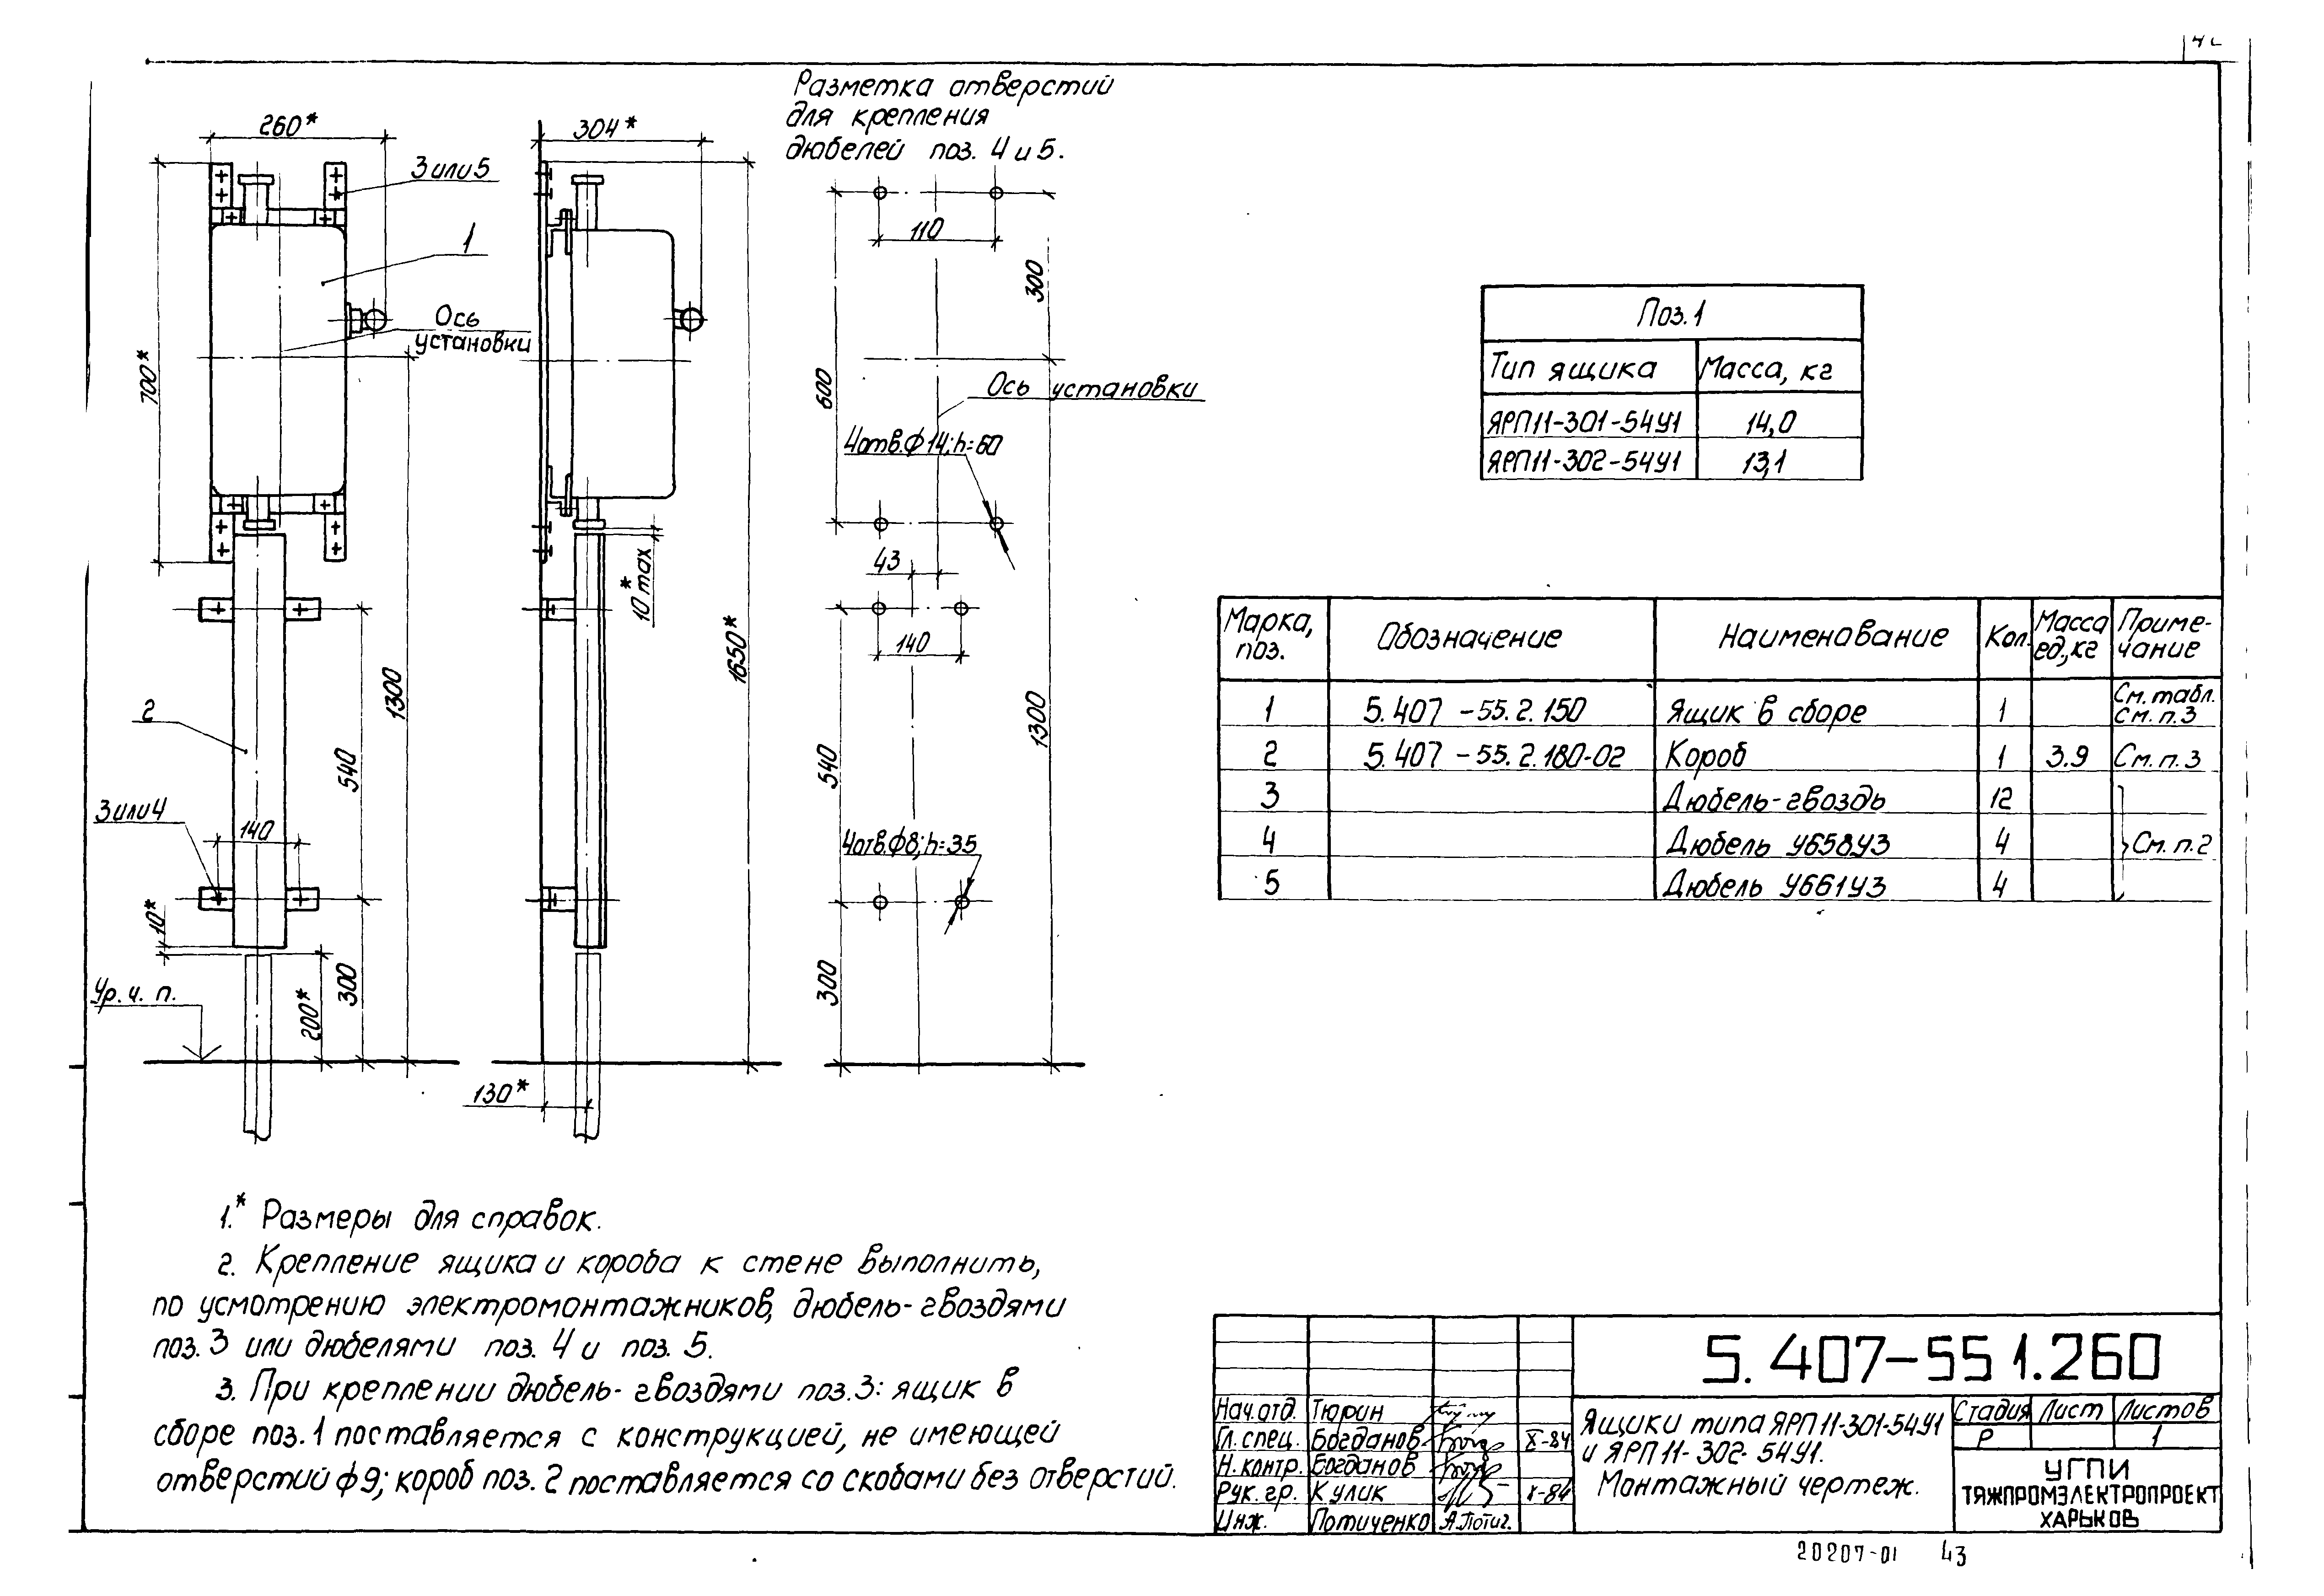 Разметка отверстий
для крепления
дюбелей поз. 4 и 5.
260*
304*
3 или 5
1
110
300
Ось
установки
700*
600
Ось установки
4отв.ф14; h=60
43
10* max
140
1650*
1300
1300
2
540
540
3 или 4
140
4отв.ф8; h=35
10*
300
300
200*
Ур. ч. п.
130*
Поз. 1
Тип ящика Масса, кг
ЯРП11-301-54У1 14,0
ЯРП11-302-54У1 13,1
Марка, поз. Обозначение Наименование Кол. Масса ед., кг Приме-чание
1 5.407-55.2.150 Ящик в сборе 1 См. табл. См. п. 3
2 5.407-55.2.180-02 Короб 1 3.9 См. п. 3
3 Дюбель-гвоздь 12
4 Дюбель У658У3 4 См. п. 2
5 Дюбель У661У3 4
1.* Размеры для справок.
2. Крепление ящика и короба к стене выполнить,
по усмотрению электромонтажников, дюбель-гвоздями
поз. 3 или дюбелями поз. 4 и поз. 5.
3. При креплении дюбель-гвоздями поз. 3: ящик в
сборе поз. 1 поставляется с конструкцией, не имеющей
отверстий ф9; короб поз. 2 поставляется со скобами без отверстий.
5.407-55 1.260
Нач. отд. Тюрин
Гл. спец. Богданов X-84
Н. контр. Богданов
Рук. гр. Кулик X-84
Инж. Потиченко А.Потич.
Ящики типа ЯРП11-301-54У1
и ЯРП11-302-54У1.
Монтажный чертеж.
Стадия Лист Листов
Р 1
УГПИ
ТЯЖПРОМЭЛЕКТРОПРОЕКТ
ХАРЬКОВ
20207-01 43